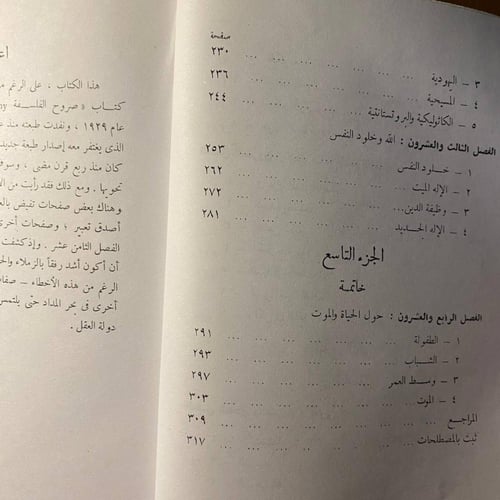 صفحة
٣ - اليهودية ... ... ... ... ... ... ٢٣٠
٤ - المسيحية ... ... ... ... ... ... ٢٣٦
٥ - الكاثوليكية والبروتستانتية ... ... ... ... ٢٤٤
الفصل الثالث والعشرون : الله وخلود النفس
١ - خلود النفس ... ... ... ... ... ٢٥٣
٢ - الإله الميت ... ... ... ... ... ٢٦٢
٣ - وظيفة الدين ... ... ... ... ... ٢٧٢
٤ - الإله الجديد ... ... ... ... ... ٢٨١
الجزء التاسع
خاتمة
الفصل الرابع والعشرون : حول الحياة والموت
١ - الطفولة ... ... ... ... ... ٢٩١
٢ - الشباب ... ... ... ... ... ٢٩٣
٣ - وسط العمر ... ... ... ... ... ٢٩٧
٤ - الموت ... ... ... ... ... ٣٠٣
المراجع ... ... ... ... ... ... ٣٠٩
ثبت بالمصطلحات ... ... ... ... ... ٣١٧
هذا الكتاب ، على الرغم
كتاب « صروح الفلسفة
عام ١٩٢٩ ، ونفدت طبعته منذ
الذى يغتفر معه إصدار طبعة جديدة
كان منذ ربع قرن مضى ، وسوف
تحويها . ومع ذلك فقد رأيت من
وهناك بعض صفحات تفيض
أصدق تعبير ؛ وصفحات أخرى
الفصل الثامن عشر . وإذ كشفت
أن أكون أشد رفقاً بالزملاء
الرغم من هذه الأخطاء -
أخرى فى بحر المداد حتى يلتمس
دولة العقل .